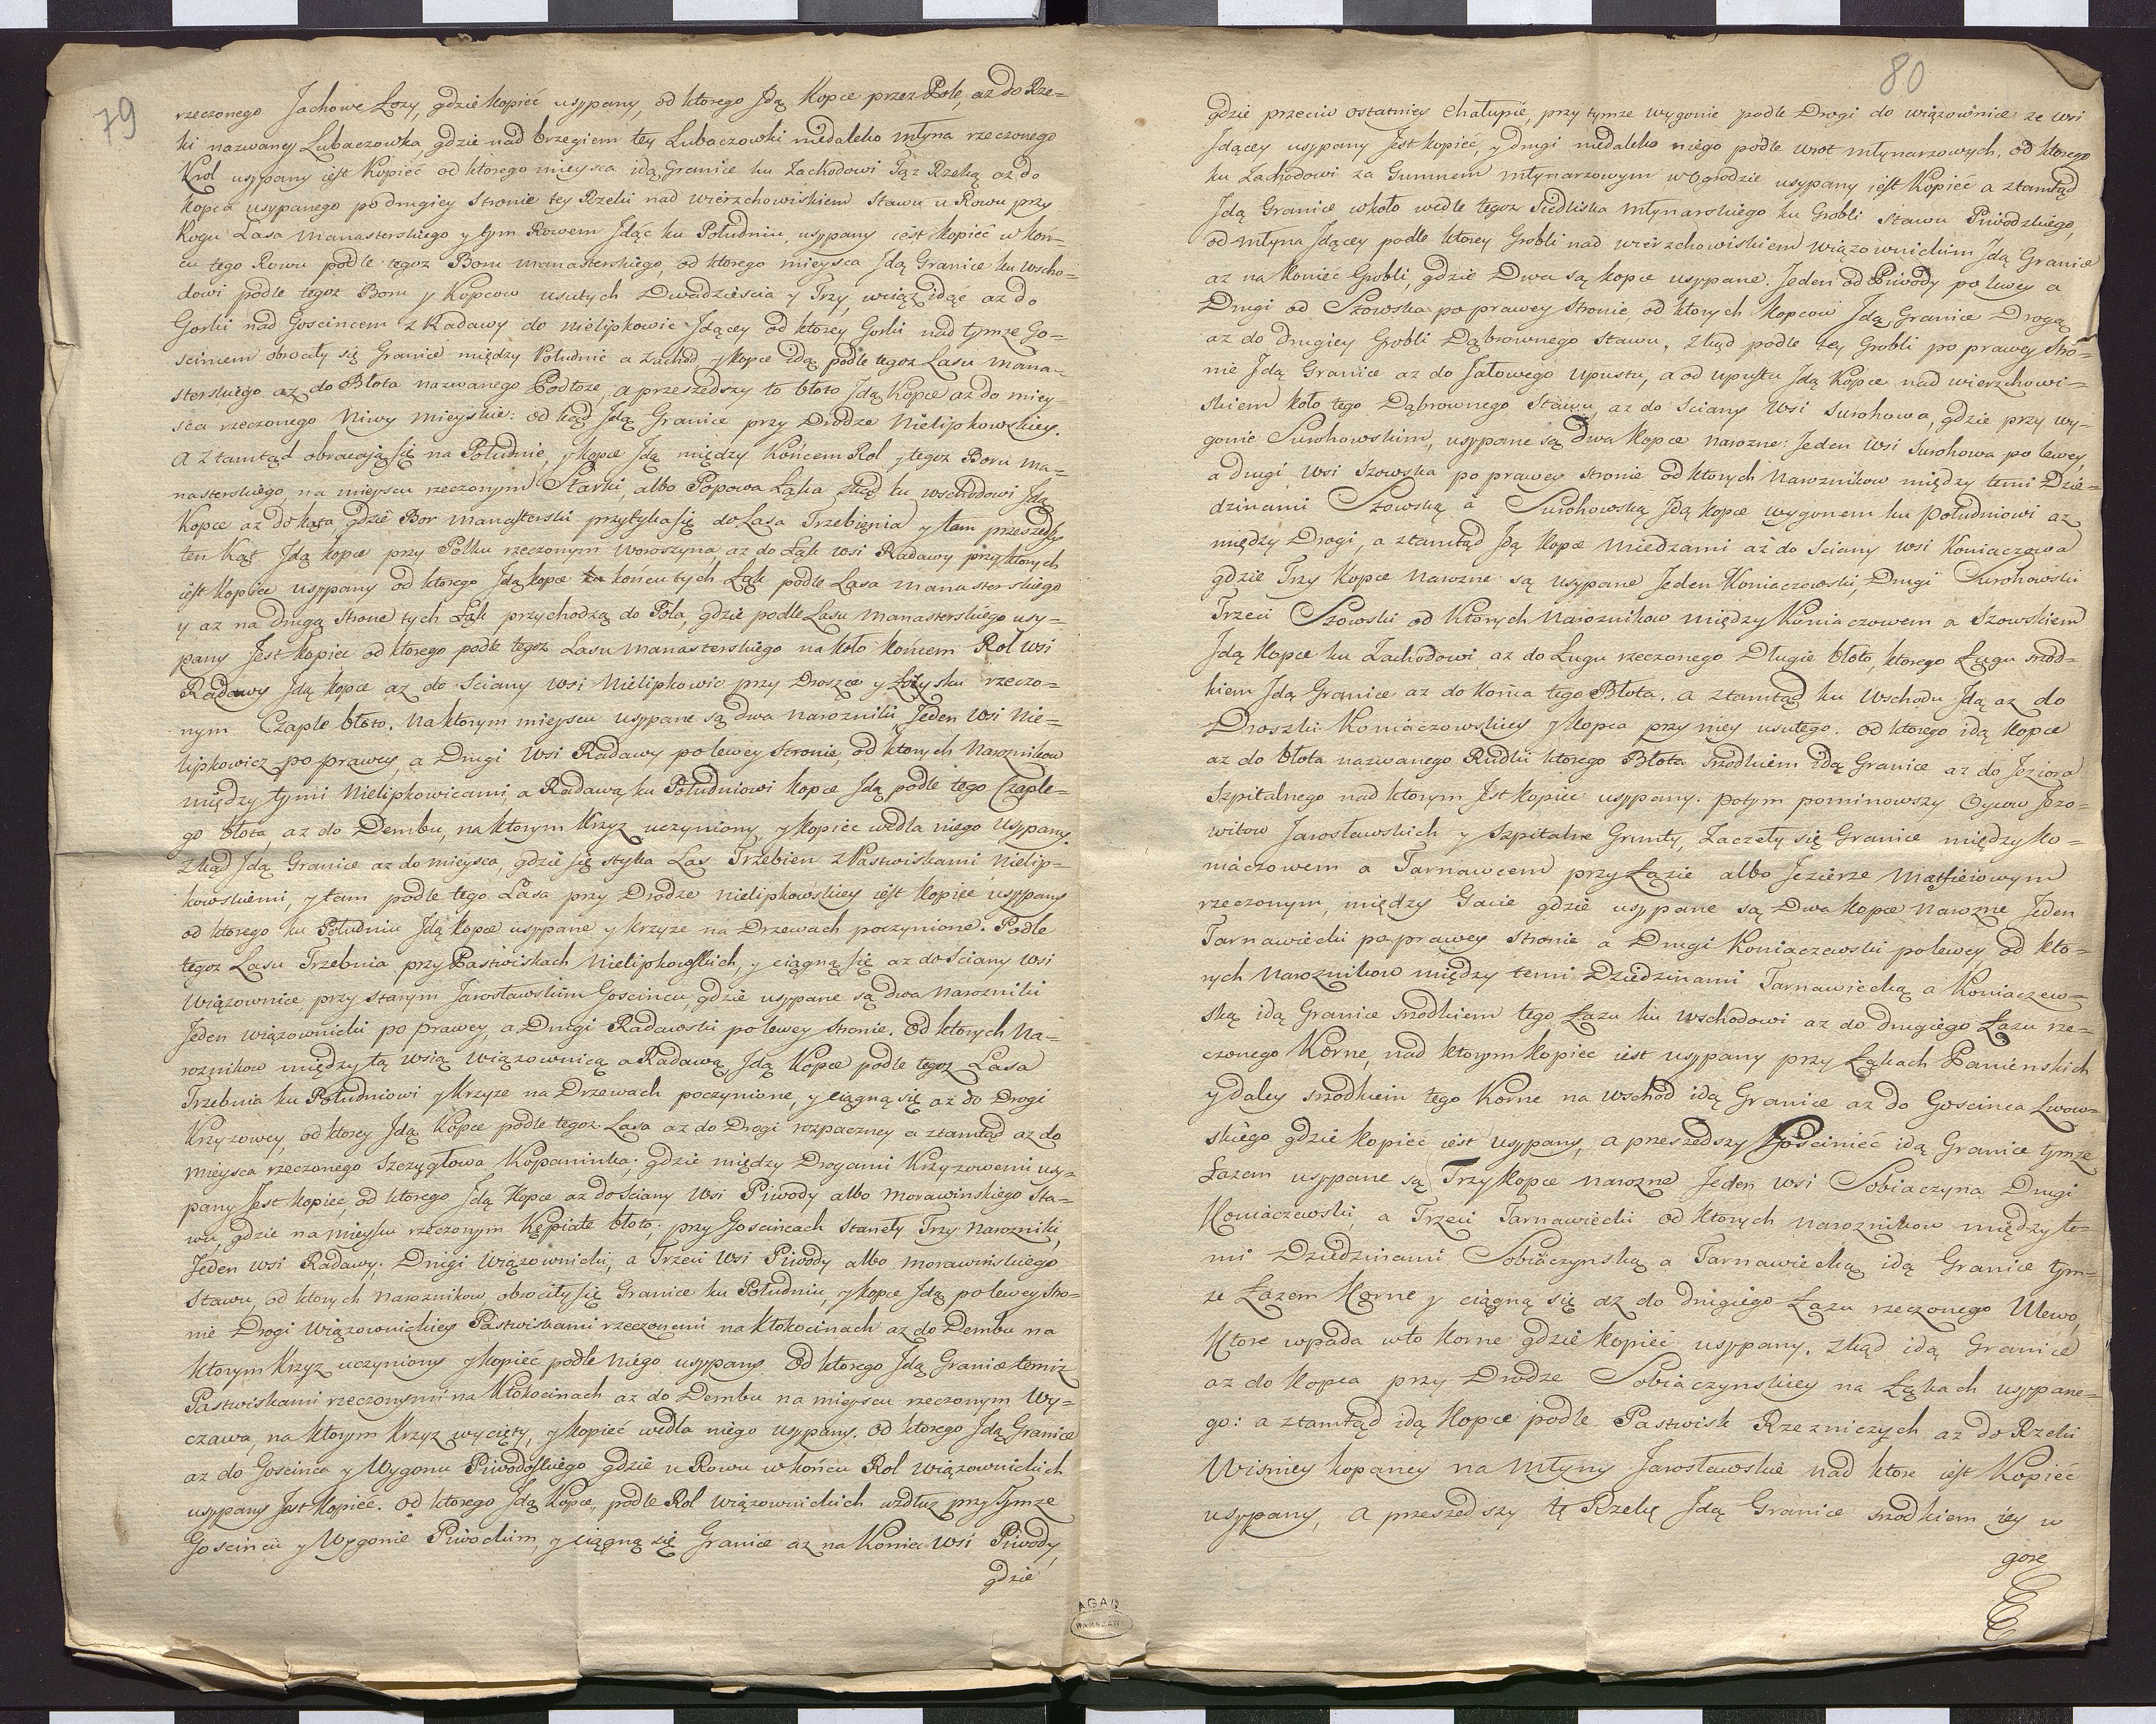 79
rzeczonego Jachowe Łozy, gdzie kopieć usypany, od ktorego Jdą Kopce przez Pole, aż do Rze-
ki nazwaney Lubaczowka, gdzie nad brzegiem tey Lubaczowki niedaleko młyna rzeczonego
Krol usypany iest Kopieć od ktorego mieysca idą Granice ku Zachodowi Tąż Rzeką aż do
kopca usypanego po drugiey stronie tey Rzeki nad wierzchowiskiem Stawu u Rowu przy
Rogu Lasa Manasterskiego y tym Rowem Jdąć ku Południu, usypany iest kopieć w koń-
cu tego Rowu podle tegoz Boru manasterskiego, od ktorego mieysca Jdą Granice ku wscho-
dowi podle tegoz Boru y Kopcow usutych Dwadzieścia y Trzy, wciąz idąć aż do
Gorki nad Goscincem z Radawy do Nielipkowic Jdącey od ktorey Gorki nad tymze Go-
scincem obrocały się Granice między Południe a Zachod y kopce idą podle tegoz Lasu Mana-
sterskiego aż do Błota nazwanego Podłoze, a przeszedszy to błoto Jdą Kopce aż do miey-
sca rzeczonego Niwy mieyskie: od kąd Jdą Granice przy Drodze Nielipkowskiey.
A ztamtąd obracają się na Południe, y kopce Jdą między Końcem Rol y tegoz Boru ma-
nasterskiego, na mieyscu rzeczonym Starki, albo Popowa Łąka zkąd ku wschodowi Jdą
Kopce aż do kąta, gdzie Bor Manasterski przytyka się do Lasa Trzebięnia y tam przeszedszy
ten Kąt Jdą kopce przy Polku rzeczonym Woroszyna, aż do Łąk wsi Radawy przy ktorych
iest kopiec usypany od ktorego Jdą kopce końcu tych Łąk podle Lasa Manasterskiego
y aż na drugą stronę tych Łąk przychodzą do Pola, gdzie podle Lasu Manasterskiego usy-
pany Jest kopiec od ktorego podle tegoz Lasu Manasterskiego na koło końcem Rol wsi
Radawy Jdą kopce aż do Sciany wsi Nielipkowic przy Droszce y Łozysku rzeczo-
nym Czaple błoto. Na ktorym mieyscu usypane są dwa narozniki, Jeden wsi Nie-
lipkowicz po prawey, a Drugi Wsi Radawy po lewey stronie, od ktorych Naroznikow
między tymi Nielipkowicami, a Radawą ku Południowi kopce Jdą podle tego Czaple-
go błota, aż do Dembu, na ktorym Krzyz uczyniony, y kopiec wedla niego Usypany.
Zkąd Jdą Granice aż do mieysca, gdzie się styka Las Trzebien z Pastwiskami Nielip-
kowskiemi, y tam podle tego Lasa przy Drodze nielipkowskiey iest kopiec usypany
od ktorego ku Południu Jdą kopce usypane y krzyze na Drzewach poczynione. Podle
tegoz Lasu Trzebnia przy Pastwiskach Nielipkowskich, y ciągną się aż do Sciany wsi
Wiązownice, przy starym Jarosławskim Goscincu, gdzie usypane są dwa Narozniki
Jeden wiązownicki po prawey, a Drugi Radawski po lewey stronie. Od ktorych Na-
roznikow między tą wsią Wiązownicą a Radawą Jdą Kopce podle tegoz Lasa
Trzebnia ku Południowi y krzyze na Drzewach poczynione, y ciągną się aż do Drogi
Krzyzowey, od ktorey Jdą Kopce podle tegoz Lasa aż do Drogi rozpaczney a ztamtąd aż do
mieysca rzeczonego Szczygłowa Kopaninka: gdzie między Drogami Krzyzowemi usy-
pany Jest kopiec, od ktorego Jdą Kopce aż do Sciany Wsi Piwody albo Morawinskiego Sta-
wu, gdzie na mieyscu rzeczonym Kępiate błoto; przy Goscincach stanęły Trzy Narozniki,
Jeden wsi Radawy; Drugi Wiązownicki, a Trzeci Wsi Piwody albo Morawińskiego
Stawu, od ktorych Naroznikow, obrociły się Granice ku Południu, y kopce Jdą po lewey stro-
nie Drogi Wiązownickiey Pastwiskami rzeczonemi na Kłokocinach aż do Dembu na
ktorym Krzyz uczyniony y kopieć podle niego usypany. Od ktorego Jdą Granice temiż
Pastwiskami rzeczonymi na Kłokocinach aż do Dembu na mieyscu rzeczonym Wy-
czawa, na ktorym Krzyz wycięty, y kopieć wedla niego usypany. Od ktorego Jdą Granice
aż do Goscinca y Wygonu Piwodskiego gdzie u Rowu w końcu Rol wiązownickich
usypany Jest kopieć. Od ktorego Jdą Kopce, podle Rol wiązownickich wzdłuż przy Tymze
Goscincu y Wygonie Piwockim, y ciągną się Granice aż na Koniec Wsi Piwody,
gdzie
80
gdzie przeciw ostatniey chałupie, przy tymze wygonie podle Drogi do wiązownice ze wsi
Jdącey usypany Jest kopieć, y drugi niedaleko niego podle wrot młynarzowych, od ktorego
ku Zachodowi za Gumnem młynarzowym w Ogrodzie usypany iest Kopieć a ztamtąd
Jdą Granice wkoło wedle tegoz Siedliska młynarskiego ku Grobli Stawu Piwodzkiego,
od młyna Jdącey podle ktorey Grobli nad wierzchowiskiem wiązownickim Jdą Granice
aż na koniec Grobli, gdzie Dwa są kopce usypane. Jeden od Piwody po lewey a
Drugi od Szowska po prawey stronie, od ktorych kopcow Jdą Granice Drogą
aż do drugiey Grobli Dąbrownego stawu. Zkąd podle tey Grobli po prawey stro-
nie Jdą Granice aż do Jałowego upustu, a od upustu Jdą Kopce nad wierzchowi-
skiem koło tego Dąbrownego Stawu, aż do Sciany Wsi Surohowa, gdzie przy wy-
gonie Surohowskim, usypane są Dwa kopce narozne: Jeden Wsi Surohowa po lewey,
a drugi wsi Szowska po prawey stronie od ktorych Naroznikow między temi Dzie-
dzinami Szowską a Surohowską Jdą kopce wygonem ku południowi aż
między Drogi, a ztamtąd Jdą kopce Miedzami aż do Sciany wsi Koniaczowa
gdzie Trzy Kopce Narozne są usypane Jeden Koniaczowski, Drugi Surohowski
Trzeci Szowski od Ktorych Naroznikow między Koniaczowem a Szowskiem
Jdą kopce ku Zachodowi aż do Ługu rzeczonego Długie błoto, ktorego Ługu srod-
kiem Jdą Granice aż do końca tego Błota. a ztamtąd ku Wschodu Jdą aż do
Droszki Koniaczowskiey y kopca przy niey usutego. od ktorego idą kopce
aż do błota nazwanego Rudki ktorego Błota srodkiem idą Granice aż do Jeziora
Szpitalnego nad ktorym Jest kopiec usypany. potym pominowszy Oycow Jezo-
witow Jarosławskich y Szpitalne Grunty, Zaczęły się Granice między Ko-
niaczowem a Tarnawcem przy Łazie albo Jezierze Matfieiowym
rzeczonym, między Gaie gdzie usypane są Dwa kopce Narozne Jeden
Tarnawiecki po prawey stronie a Drugi Koniaczewski po lewey, od kto-
rych Naroznikow między temi Dziedzinami Tarnawiecką a Koniaczew-
ską idą Granice srodkiem tego Łazu ku wschodowi aż do drugiego Łazu rze-
czonego Korne, nad ktorym kopiec iest usypany przy Łąkach Panienskich
y daley srzodkiem tego Korne na wschod idą Granice aż do Goscinca Lwow-
skiego gdzie kopieć iest usypany, a przeszedszy Gosciniec idą Granice tymze
Łazem usypane są Trzy kopce narozne Jeden wsi Sobiaczyna Drugi
Koniaczewski, a Trzeci Tarnawiecki od ktorych naroznikow między te-
mi Dziedzinami Sobiaczynską a Tarnawiecką idą Granice tym-
ze Łazem Korne y ciągną się aż do drugiego Łazu rzeczonego Ulewo,
Ktore wpada w to Korne gdzie kopieć usypany. zkąd idą Granice
aż do kopca przy Drodze Sobiaczynskiey na Łąkach usypane-
go: a ztamtąd idą Kopce podle Pastwisk Rzezniczych aż do Rzeki
Wiśniey kopaney na Młyny Jarosławskie nad ktore iest Kopieć
usypany, a przeszedszy tę Rzekę Jdą Granice srzodkiem iey w
gorę
AGAD
WARSZAWA